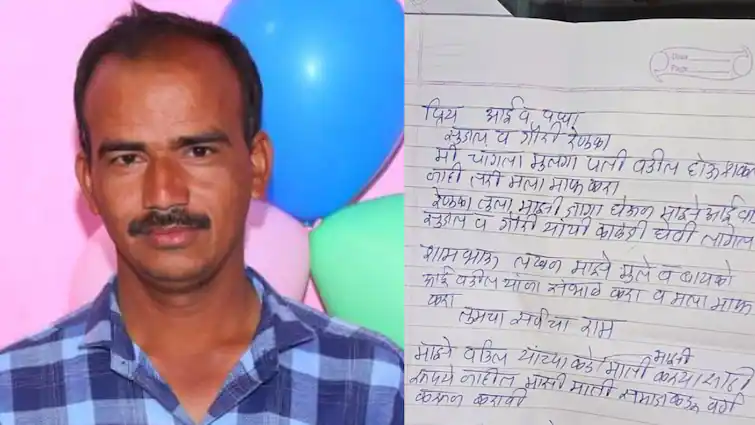 Date
Page
प्रिय आई व पप्पा
व गौरी रेणुका
मी चांगला मुलगा पती वडील होऊ शकलो
नाही तरी मला माफ करा
रेणुका तुला माझी जागा घेऊन माझे आई व
व गौरी यांची काळजी घ्यावी लागेल
शामभाऊ लखन माझे मुले व बायको
आई वडील यांना सांभाळ करा व मला माफ
करा
तुमचा सर्वांचा राम
माझे वडील यांच्या कडे माती माझी करण्यासाठी
रुपये नाहीत माझी माती समाजाकडून वर्ग
करून करावी